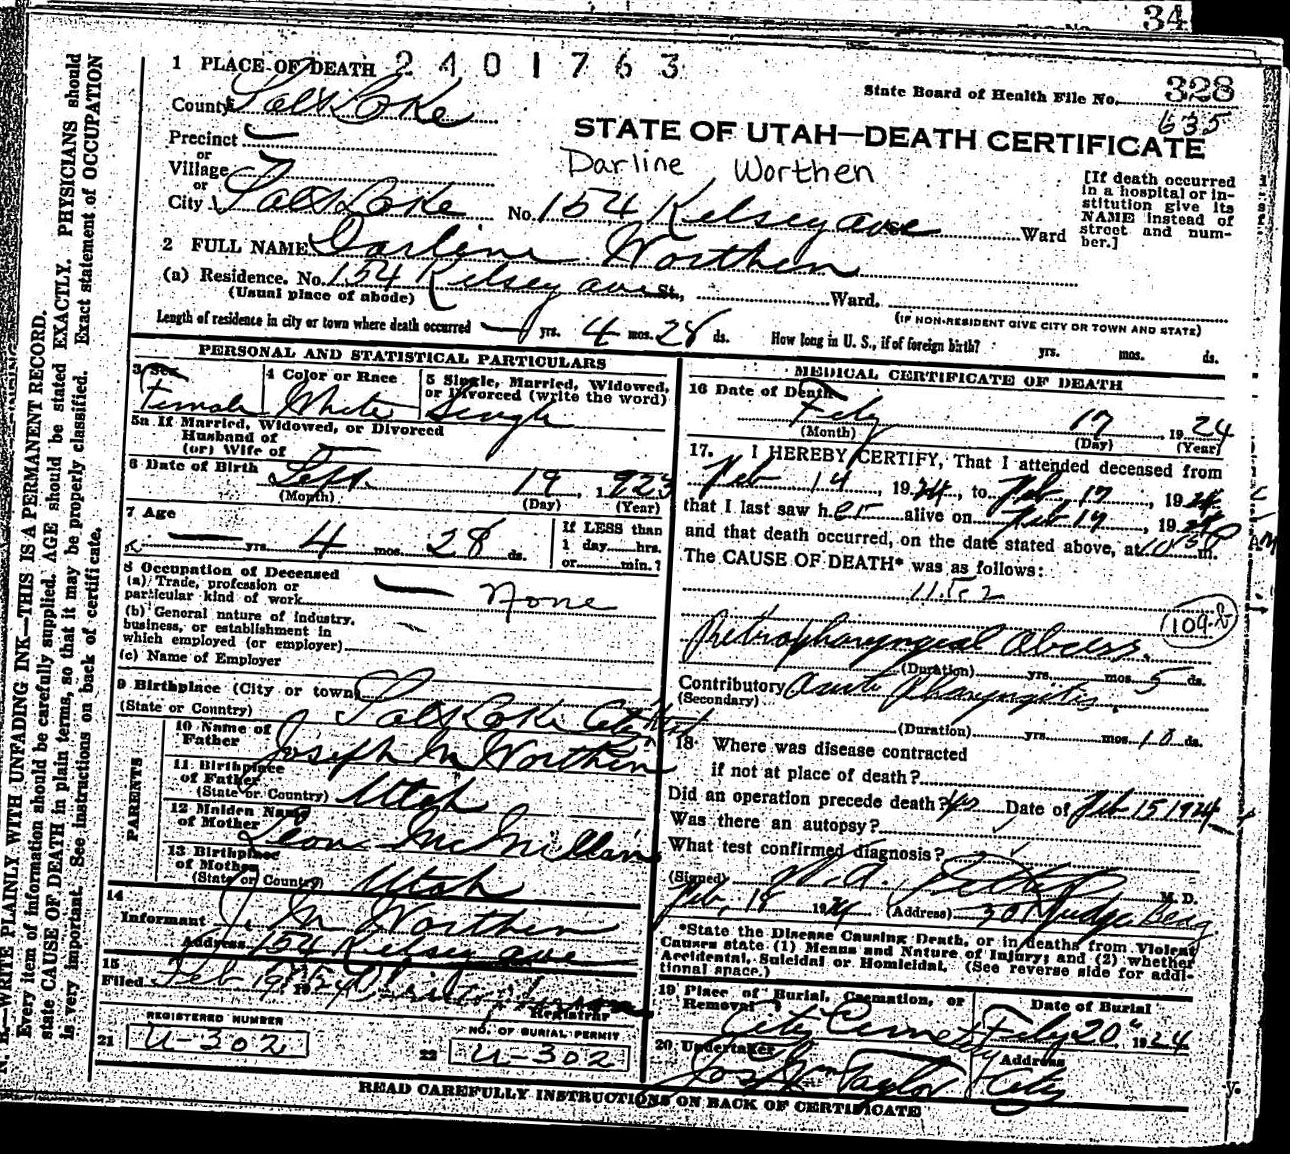 34
1 PLACE OF DEATH 2401763
State Board of Health File No. 328
635
County Salt Lake
STATE OF UTAH—DEATH CERTIFICATE
Precinct
or
Village
or
Darline Worthen
City Salt Lake No. 154 Kelsey ave Ward
[If death occurred
in a hospital or in-
stitution give its
NAME instead of
street and num-
ber.]
2 FULL NAME Darline Worthen
(a) Residence. No. 154 Kelsey ave St., Ward.
(Usual place of abode)
(IF NON-RESIDENT GIVE CITY OR TOWN AND STATE)
Length of residence in city or town where death occurred — yrs. 4 mos. 28 ds. How long in U. S., if of foreign birth? yrs. mos. ds.
PERSONAL AND STATISTICAL PARTICULARS
3 Sex 4 Color or Race 5 Single, Married, Widowed,
or Divorced (write the word)
Female White Single
5a If Married, Widowed, or Divorced
Husband of
(or) Wife of
6 Date of Birth Sept. 19, 1923
(Month) (Day) (Year)
7 Age
— yrs. 4 mos. 28 ds.
If LESS than
1 day......hrs.
or......min.?
8 Occupation of Deceased
(a) Trade, profession or
particular kind of work — None
(b) General nature of industry,
business, or establishment in
which employed (or employer)
(c) Name of Employer
9 Birthplace (City or town) Salt Lake City Utah
(State or Country)
PARENTS
10 Name of
Father Joseph M Worthen
11 Birthplace
of Father
(State or Country) Utah
12 Maiden Name
of Mother Leon McMillan
13 Birthplace
of Mother
(State or Country) Utah
14
Informant J. M Worthen
Address 154 Kelsey ave
15
Filed Feb 19, 1924
Registrar
REGISTERED NUMBER
21 U-302
NO. OF BURIAL PERMIT
22 U-302
MEDICAL CERTIFICATE OF DEATH
16 Date of Death
Feby 17, 1924
(Month) (Day) (Year)
17. I HEREBY CERTIFY, That I attended deceased from
Feb 14, 1924, to Feb, 17, 1924
that I last saw her alive on Feb 17, 1924
and that death occurred, on the date stated above, at m.
The CAUSE OF DEATH* was as follows:
115.2
109.
Retropharyngial Abcess.
(Duration) yrs. mos. 5 ds.
Contributory Acute Pharyngitis.
(Secondary)
(Duration) yrs. mos. 10 ds.
18 Where was disease contracted
if not at place of death?
Did an operation precede death? Yes Date of Feb 15 1924
Was there an autopsy?
What test confirmed diagnosis?
(Signed) M. D.
Feb, 18 1924 (Address) 301 Judge Bldg
*State the Disease Causing Death, or in deaths from Violent
Causes state (1) Means and Nature of Injury; and (2) whether
Accidental, Suicidal or Homicidal. (See reverse side for addi-
tional space.)
19 Place of Burial, Cremation, or
Removal
City Cemetery
Date of Burial
Feby 20" 1924
20 Undertaker
Jos Wm Taylor
Address
City
READ CAREFULLY INSTRUCTIONS ON BACK OF CERTIFICATE
N. B.—WRITE PLAINLY WITH UNFADING INK—THIS IS A PERMANENT RECORD.
Every item of information should be carefully supplied. AGE should be stated EXACTLY. PHYSICIANS should
state CAUSE OF DEATH in plain terms, so that it may be properly classified. Exact statement of OCCUPATION
is very important. See instructions on back of certificate.